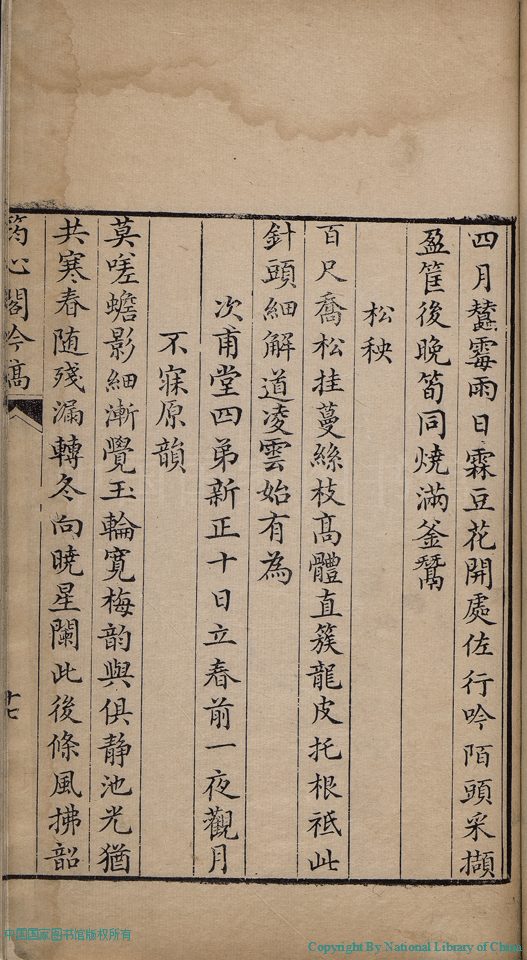 四月蠶霉雨日霖豆花開處佐行吟陌頭采擷
盈筐後晚筍同燒滿釜鬵
松秧
百尺喬松挂蔓絲枝高體直簇龍皮托根祗此
針頭細解道凌雲始有為
次甫堂四弟新正十日立春前一夜觀月
不寐原韻
莫嗟蟾影細漸覺玉輪寬梅韵與俱静池光猶
共寒春随殘漏轉冬向曉星闌此後條風拂韶
筠心閣吟稿
十七
中国国家图书馆版权所有
Copyright By National Library of China